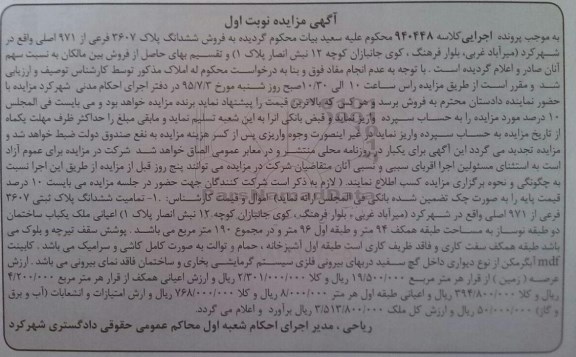 آگهی مزایده نوبت اول
به موجب پرونده اجرایی کلاسه ۹۴۰۴۴۸ محکوم علیه سعید بیات محکوم گردیده به فروش ششدانگ پلاک ۳۶۰۷ فرعی از ۹۷۱ اصلی واقع در
شهرکرد (میرآباد غربی، بلوار فرهنگ ، کوی جانبازان کوچه ۱۲ نبش انصار پلاک ۱) و تقسیم بهای حاصل از فروش بین مالکان به نسبت سهم
آنان صادر و اعلام گردیده است . با توجه به عدم انجام مفاد فوق و بنا به درخواست محکوم له املاک مذکور توسط کارشناس توصیف و ارزیابی
شد و مقرر است از طریق مزایده رأس ساعت ۱۰ الی ۱۰/۳۰صبح روز شنبه مورخ ۹۵/۷/۳ در دفتر اجرای احکام مدنی شهرکرد مزایده با
حضور نماینده دادستان محترم به فروش برسد و هر کس که بالاترین قیمت را پیشنهاد نماید برنده مزایده خواهد بود و می بایست فی المجلس
۱۰ درصد مورد مزایده را به حساب سپرده واریز نماید و قبض بانکی آنرا به این شعبه تسلیم نماید و مابقی مبلغ را حداکثر ظرف مهلت یکماه
از تاریخ مزایده به حساب سپرده واریز نماید در غیر اینصورت وجوه واریزی پس از کسر هزینه مزایده به نفع صندوق دولت ضبط خواهد شد و
مزایده تجدید می گردد این آگهی برای یکبار در روزنامه محلی منتشر و در معابر عمومی الصاق خواهد شد شرکت در مزایده برای عموم آزاد
است به استثنای مسئولین اجرا اقربای سببی و نسبی آنان متقاضیان شرکت در مزایده می توانند پنج روز قبل از مزایده از طریق این اجرا نسبت
به چگونگی و نحوه برگزاری مزایده کسب اطلاع نمایند. (لازم به ذکر است شرکت کنندگان جهت حضور در جلسه مزایده می بایست ۱۰ درصد
قیمت پایه را به صورت چک تضمین شده بانکی فی المجلس ارائه نماید) اموال و قیمت کارشناس : ۱- تمامیت ششدانگ پلاک ثبتی ۳۶۰۷
فرعی از ۹۷۱ اصلی واقع در شهرکرد (میرآباد غربی ، بلوار فرهنگی، کوی جانبازان کوچه ۱۲ نبش انصار پلاک ۱) اعیانی ملک یکباب ساختمان
دو طبقه نوساز به مساحت طبقه همکف ۹۴ متر و طبقه اول ۹۶ متر و در مجموع ۱۹۰ متر مربع می باشد. پوشش سقف تیرچه و بلوک می
باشد طبقه همکف سفت کاری و فاقد ظریف کاری است طبقه اول آشپزخانه ، حمام و توالت به صورت کامل کاشی و سرامیک می باشد . کابینت
mdf آبگرمکن از نوع دیواری داخل گچ سفید دربهای بیرونی فلزی سیستم گرمایشی بخاری و ساختمان فاقد نمای بیرونی می باشد. ارزش
عرصه ( زمین ) از قرار هر متر مربع ۱۹/۵۰۰/۰۰۰ ریال و کلا ۲/۳۰۱/۰۰۰/۰۰۰ ریال و ارزش اعیانی همکف از قرار هر متر مربع ۴/۲۰۰/۰۰۰
ریال و کلا ۳۹۴/۸۰۰/۰۰۰ ریال و اعیانی طبقه اول هر متر ۸/۰۰۰/۰۰۰ ریال و کلا ۷۶۸/۰۰۰/۰۰۰ ریال و ارش امتیازات و انشعابات (آب و برق
و گاز) ۵۰/۰۰۰/۰۰۰ ریال و ارزش کل ملک ۳/۵۱۳/۸۰۰/۰۰۰ ریال برآورد و اعلام می گردد.
ریاحی ، مدیر اجرای احکام شعبه اول محاکم عمومی حقوقی دادگستری شهرکرد